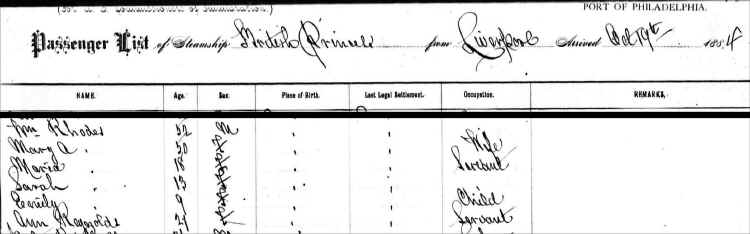 PORT OF PHILADELPHIA.
Passenger List of Steamship British Princess from Liverpool Arrived Oct 19th 1884
NAME. Age. Sex. Place of Birth. Last Legal Settlement. Occupation. REMARKS.
Wm Rhodes 52 M
Mary A. 50 Wife
Maria 18 Servant
Sarah 13
Emily 9 Child
Ann Reynolds Servant